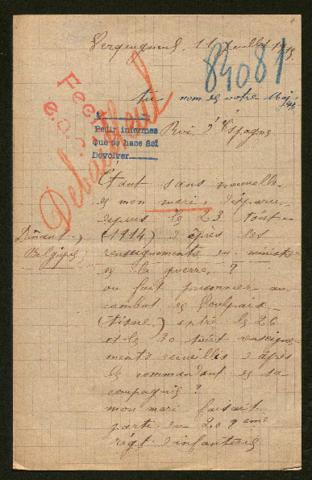 Verquigneul, 11 Juillet 1915
84081
au nom de notre Majesté
Roi d'Espagne
Pedir informes
que se hace así
Devolver
Debailleul
Étant sans nouvelles
de mon mari, disparu
depuis le 23 août
Dinant, (1914) d'après les
Belgique renseignements du ministère
de la guerre. ?
ou fait prisonnier au
combat de
(Aisne) entre le 26
et le 30 août renseigne-
ments recueillis d'après
le commandant de sa
compagnie ?
mon mari faisait
partie du 20 9eme
régt d'infanterie